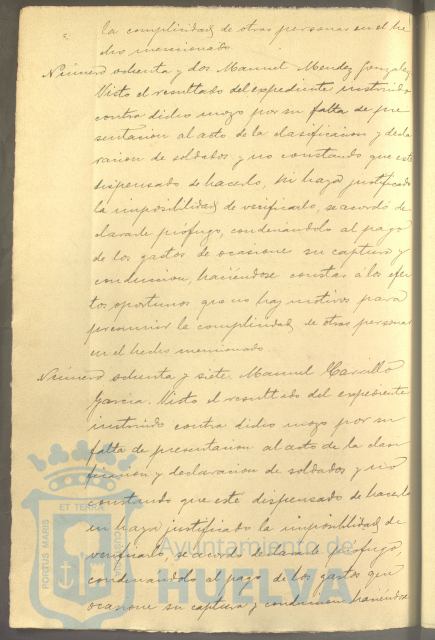 la complicidad de otras personas en el he
cho mencionado.
Número ochenta y dos Manuel Mendez Gonzalez
Visto el resultado del expediente instruido
contra dicho mozo por su falta de pre
sentacion al acto de la clasificacion y decla
racion de soldados y no constando que este
dispensado de hacerlo, ni haya justificado
la imposibilidad de verificarlo, se acordó de
clararle prófugo, condenándolo al pago
de los gastos de ocasione su captura y
conduccion, haciéndose constar á los efec
tos oportunos que no hay motivos para
presumir la complicidad de otras personas
en el hecho mencionado.
Número ochenta y siete. Manuel Carrillo
García. Visto el resultado del expediente
instruido contra dicho mozo por su
falta de presentacion al acto de la clasi
ficacion y declaracion de soldados y no
constando que este dispensado de hacerlo
ni haya justificado la imposibilidad de
verificarlo, se acordó declararle prófugo,
condenándolo al pago de los gastos que
ocasione su captura y conduccion haciéndose
ET TERRA
PORTUS MARIS
CUSTODIA
Ayuntamiento de
HUELVA